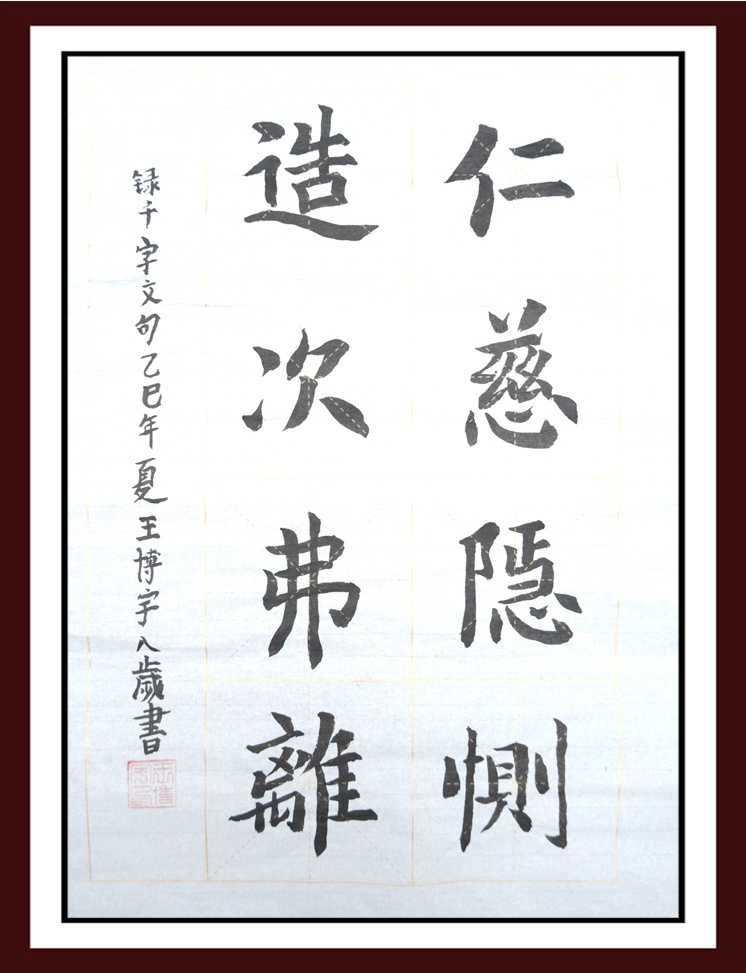 仁慈隱惻
造次弗離
録千字文句乙巳年夏王博宇八歲書